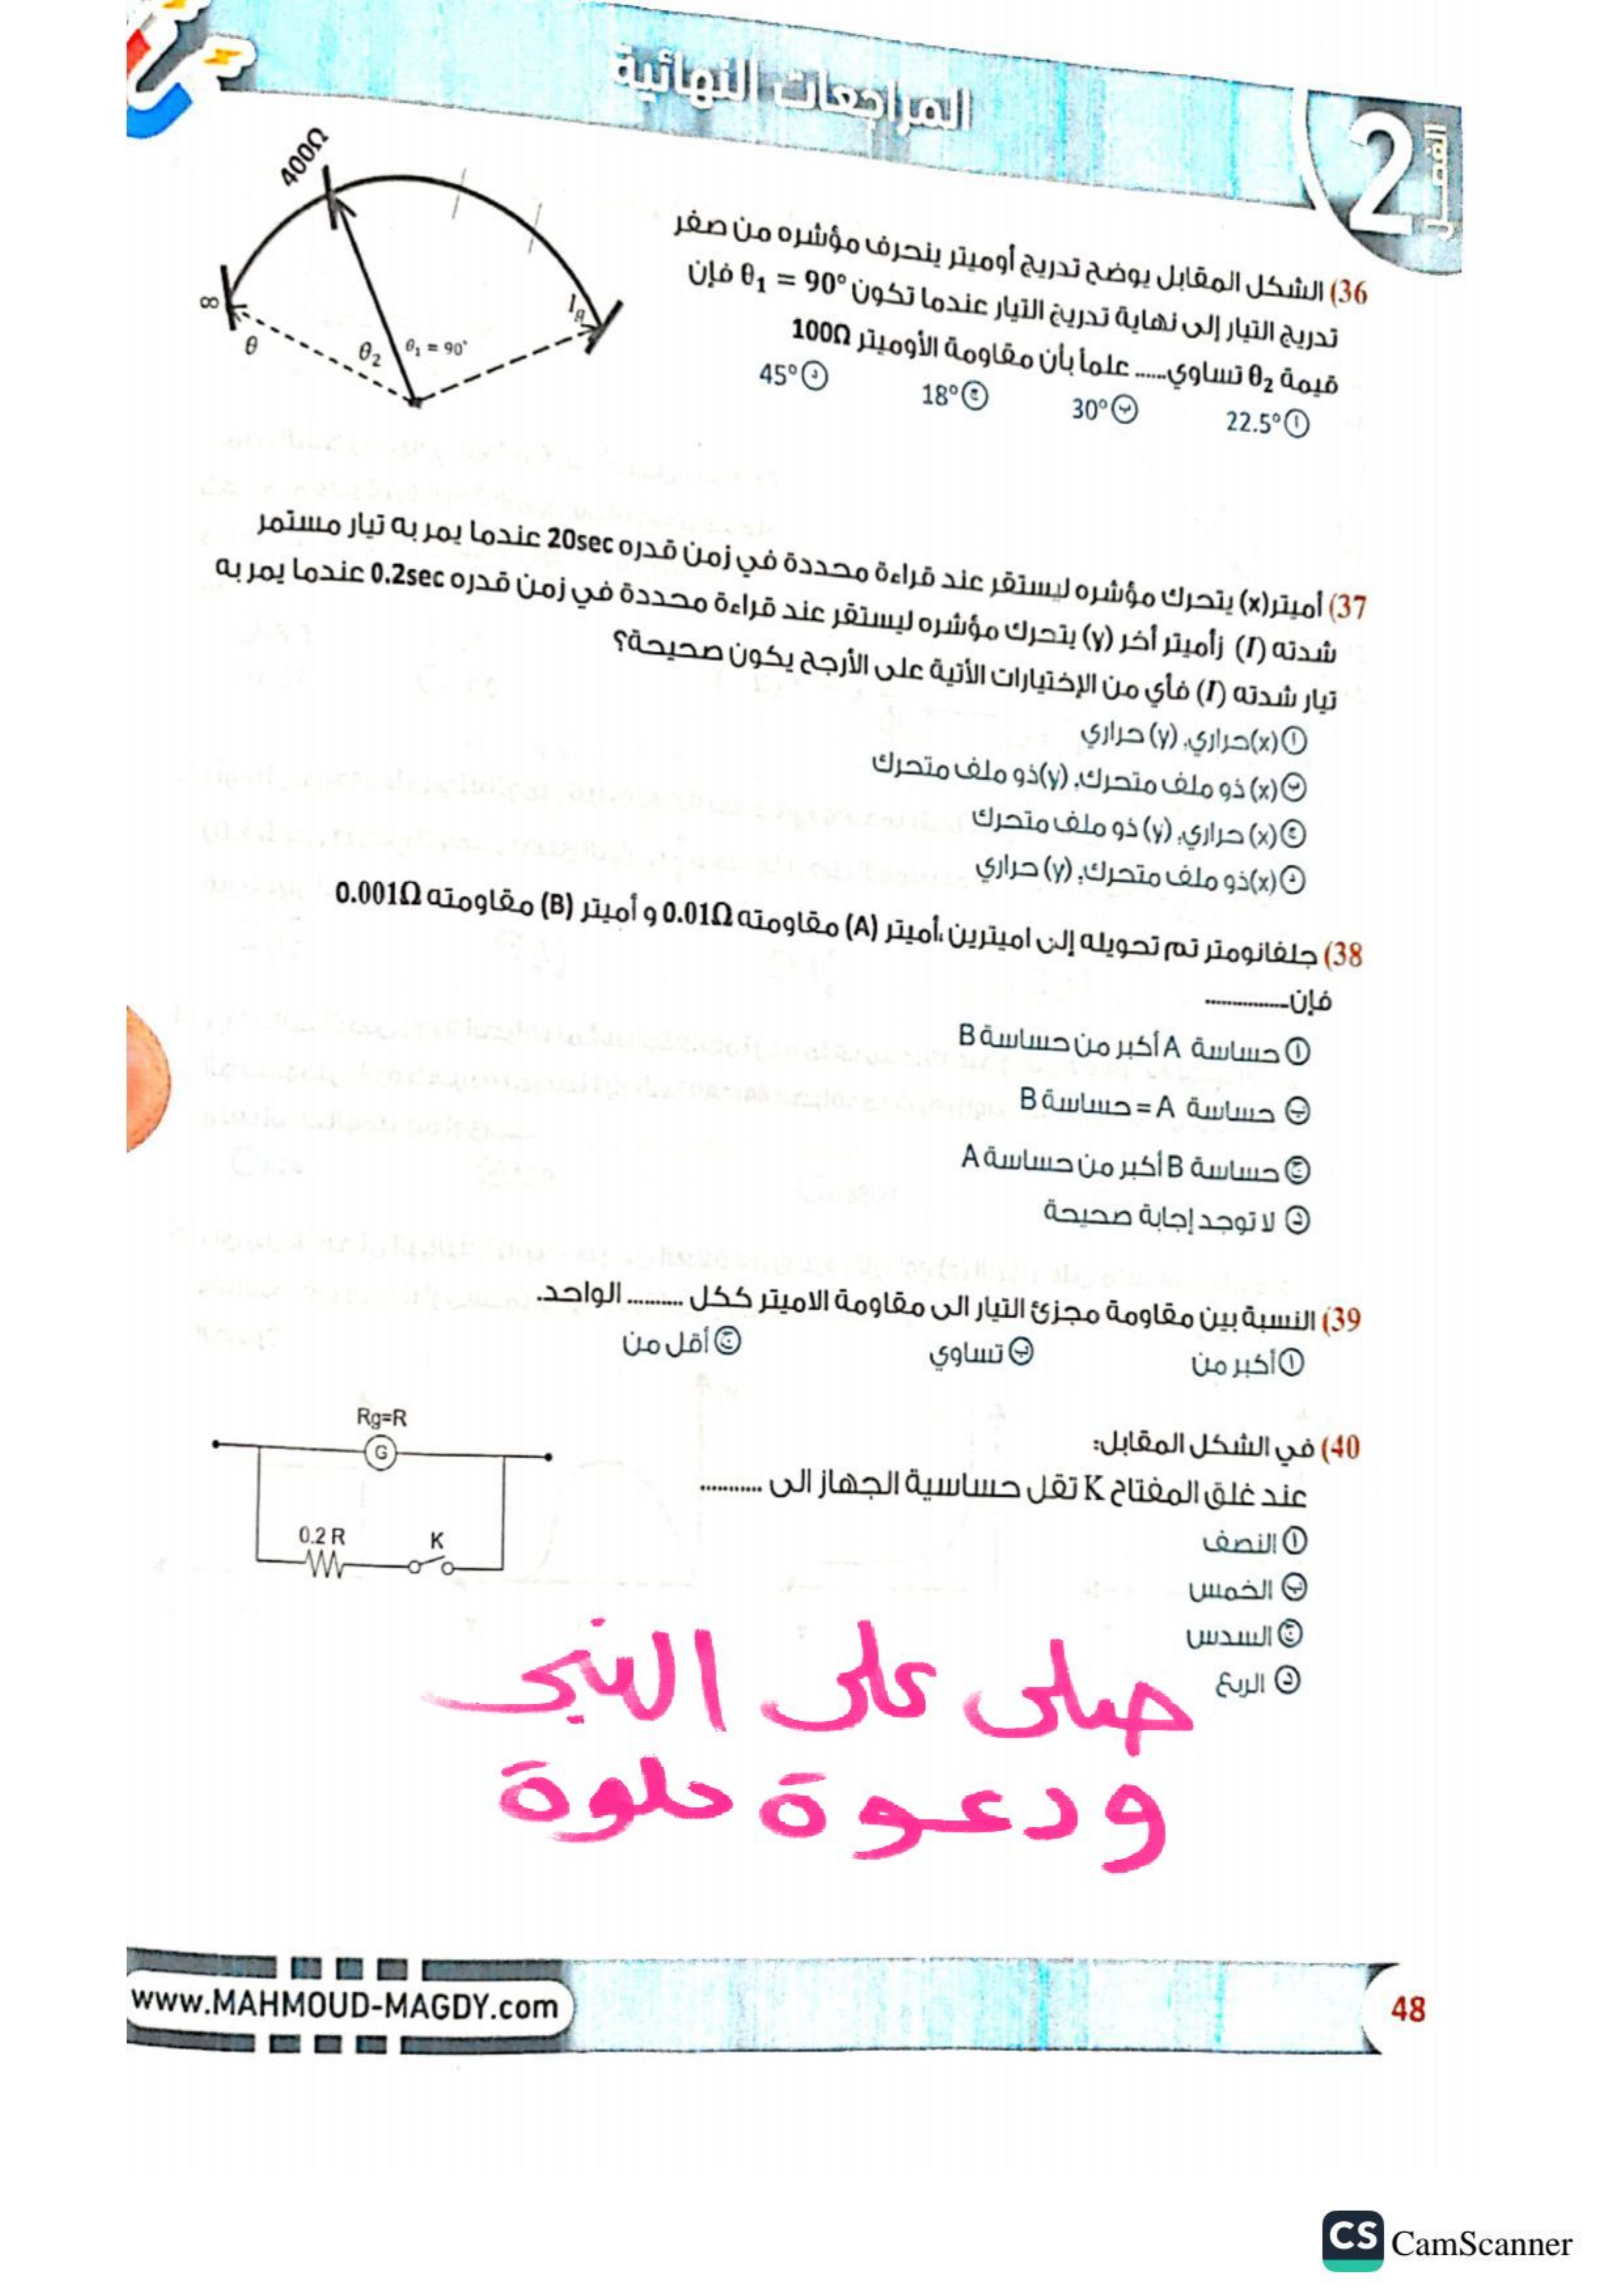 المراجعات النهائية
الفصل 2
36) الشكل المقابل يوضح تدريج أوميتر ينحرف مؤشره من صفر
تدريج التيار إلى نهاية تدريج التيار عندما تكون θ₁ = 90° فإن
قيمة θ₂ تساوي...... علماً بأن مقاومة الأوميتر 100Ω
أ 22.5° ب 30° ج 18° د 45°
400Ω
∞
Ig
θ θ₂ θ₁ = 90°
37) أميتر(x) يتحرك مؤشره ليستقر عند قراءة محددة في زمن قدره 20sec عندما يمر به تيار مستمر
شدته (I) زأميتر أخر (y) يتحرك مؤشره ليستقر عند قراءة محددة في زمن قدره 0.2sec عندما يمر به
تيار شدته (I) فأي من الإختيارات الأتية على الأرجح يكون صحيحة؟
أ (x)حراري، (y) حراري
ب (x) ذو ملف متحرك، (y)ذو ملف متحرك
ج (x) حراري، (y) ذو ملف متحرك
د (x)ذو ملف متحرك، (y) حراري
38) جلفانومتر تم تحويله إلى اميترين،أميتر (A) مقاومته 0.01Ω و أميتر (B) مقاومته 0.001Ω
فإن...............
أ حساسة A أكبر من حساسة B
ب حساسة A = حساسة B
ج حساسة B أكبر من حساسة A
د لا توجد إجابة صحيحة
39) النسبة بين مقاومة مجزئ التيار الى مقاومة الاميتر ككل .......... الواحد.
أ أكبر من ب تساوي ج أقل من
40) في الشكل المقابل:
عند غلق المفتاح K تقل حساسية الجهاز الى ...........
أ النصف
ب الخمس
ج السدس
د الربع
Rg=R
G
0.2 R K
صلى على النبي
ودعوة حلوة
www.MAHMOUD-MAGDY.com
48
CS CamScanner